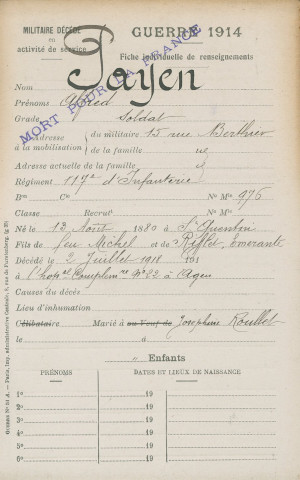 MILITAIRE DÉCÉDÉ
en
activité de service
GUERRE 1914
Fiche individuelle de renseignements
MORT POUR LA FRANCE
Nom Payen
Prénoms Alfred
Grade Soldat
Adresse à la mobilisation { du militaire 15 rue Berthier
de la famille
Adresse actuelle de la famille
Régiment 117e d'Infanterie
Bon Cie No Mle 976
Classe Recrut No Mle
Né le 13 Août 1880 à St Quentin
Fils de feu Michel et de Rifflet Emerante
Décédé le 2 Juillet 1918 191
à l'hopal Complemre No 22 à Agen
Causes du décès
Lieu d'inhumation
Célibataire Marié à ou Veuf de Joséphine Roullet
le à
Enfants
PRÉNOMS DATES ET LIEUX DE NAISSANCE
1o 19
2o 19
3o 19
4o 19
5o 19
6o 19